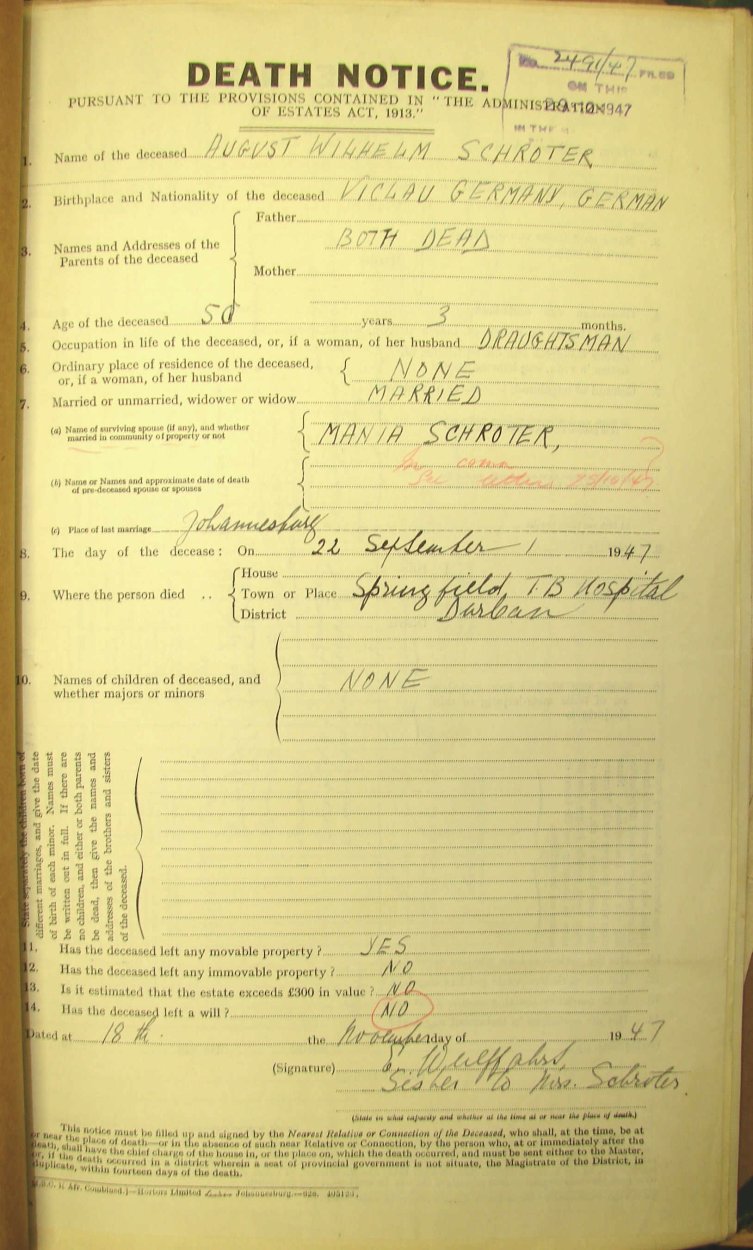 DEATH NOTICE.
No. 2491/47 FILED
ON THIS
1947
IN THE
PURSUANT TO THE PROVISIONS CONTAINED IN "THE ADMINISTRATION
OF ESTATES ACT, 1913."
1. Name of the deceased AUGUST WILHELM SCHROTER
2. Birthplace and Nationality of the deceased VICLAU GERMANY, GERMAN
3. Names and Addresses of the Parents of the deceased
Father
BOTH DEAD
Mother
4. Age of the deceased 50 years 3 months.
5. Occupation in life of the deceased, or, if a woman, of her husband DRAUGHTSMAN
6. Ordinary place of residence of the deceased, or, if a woman, of her husband NONE
7. Married or unmarried, widower or widow MARRIED
(a) Name of surviving spouse (if any), and whether married in community of property or not MANIA SCHROTER,
In com
See 25/10/47
(b) Name or Names and approximate date of death of pre-deceased spouse or spouses
(c) Place of last marriage Johannesburg
8. The day of the decease: On 22 September 1947
9. Where the person died ..
House
Town or Place Springfield T.B Hospital
District Durban
10. Names of children of deceased, and whether majors or minors NONE
State separately the children born of
different marriages, and give the date
of birth of each minor. Names must
be written out in full. If there are
no children, and either or both parents
be dead, then give the names and
addresses of the brothers and sisters
of the deceased.
11. Has the deceased left any movable property? YES
12. Has the deceased left any immovable property? NO
13. Is it estimated that the estate exceeds £300 in value? NO
14. Has the deceased left a will? NO
Dated at 18th. the November day of 1947
(Signature)
Sister to Mrs. Schroter.
(State in what capacity and whether at the time at or near the place of death.)
This notice must be filled up and signed by the Nearest Relative or Connection of the Deceased, who shall, at the time, be at
or near the place of death—or in the absence of such near Relative or Connection, by the person who, at or immediately after the
death, shall have the chief charge of the house in, or the place on, which the death occurred, and must be sent either to the Master,
or, if the death occurred in a district wherein a seat of provincial government is not situate, the Magistrate of the District, in
duplicate, within fourteen days of the death.
Combined.]—Hortors Limited Johannesburg.